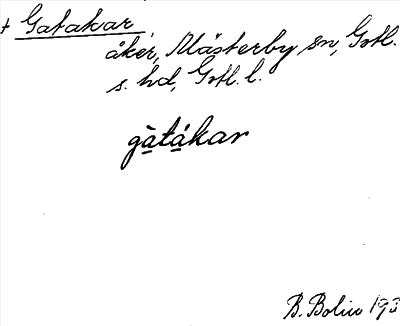 + Gatakar
åker, Mästerby sn, Gotl.
s. hd, Gotl. l.
gàtákar
B. Bolin 193